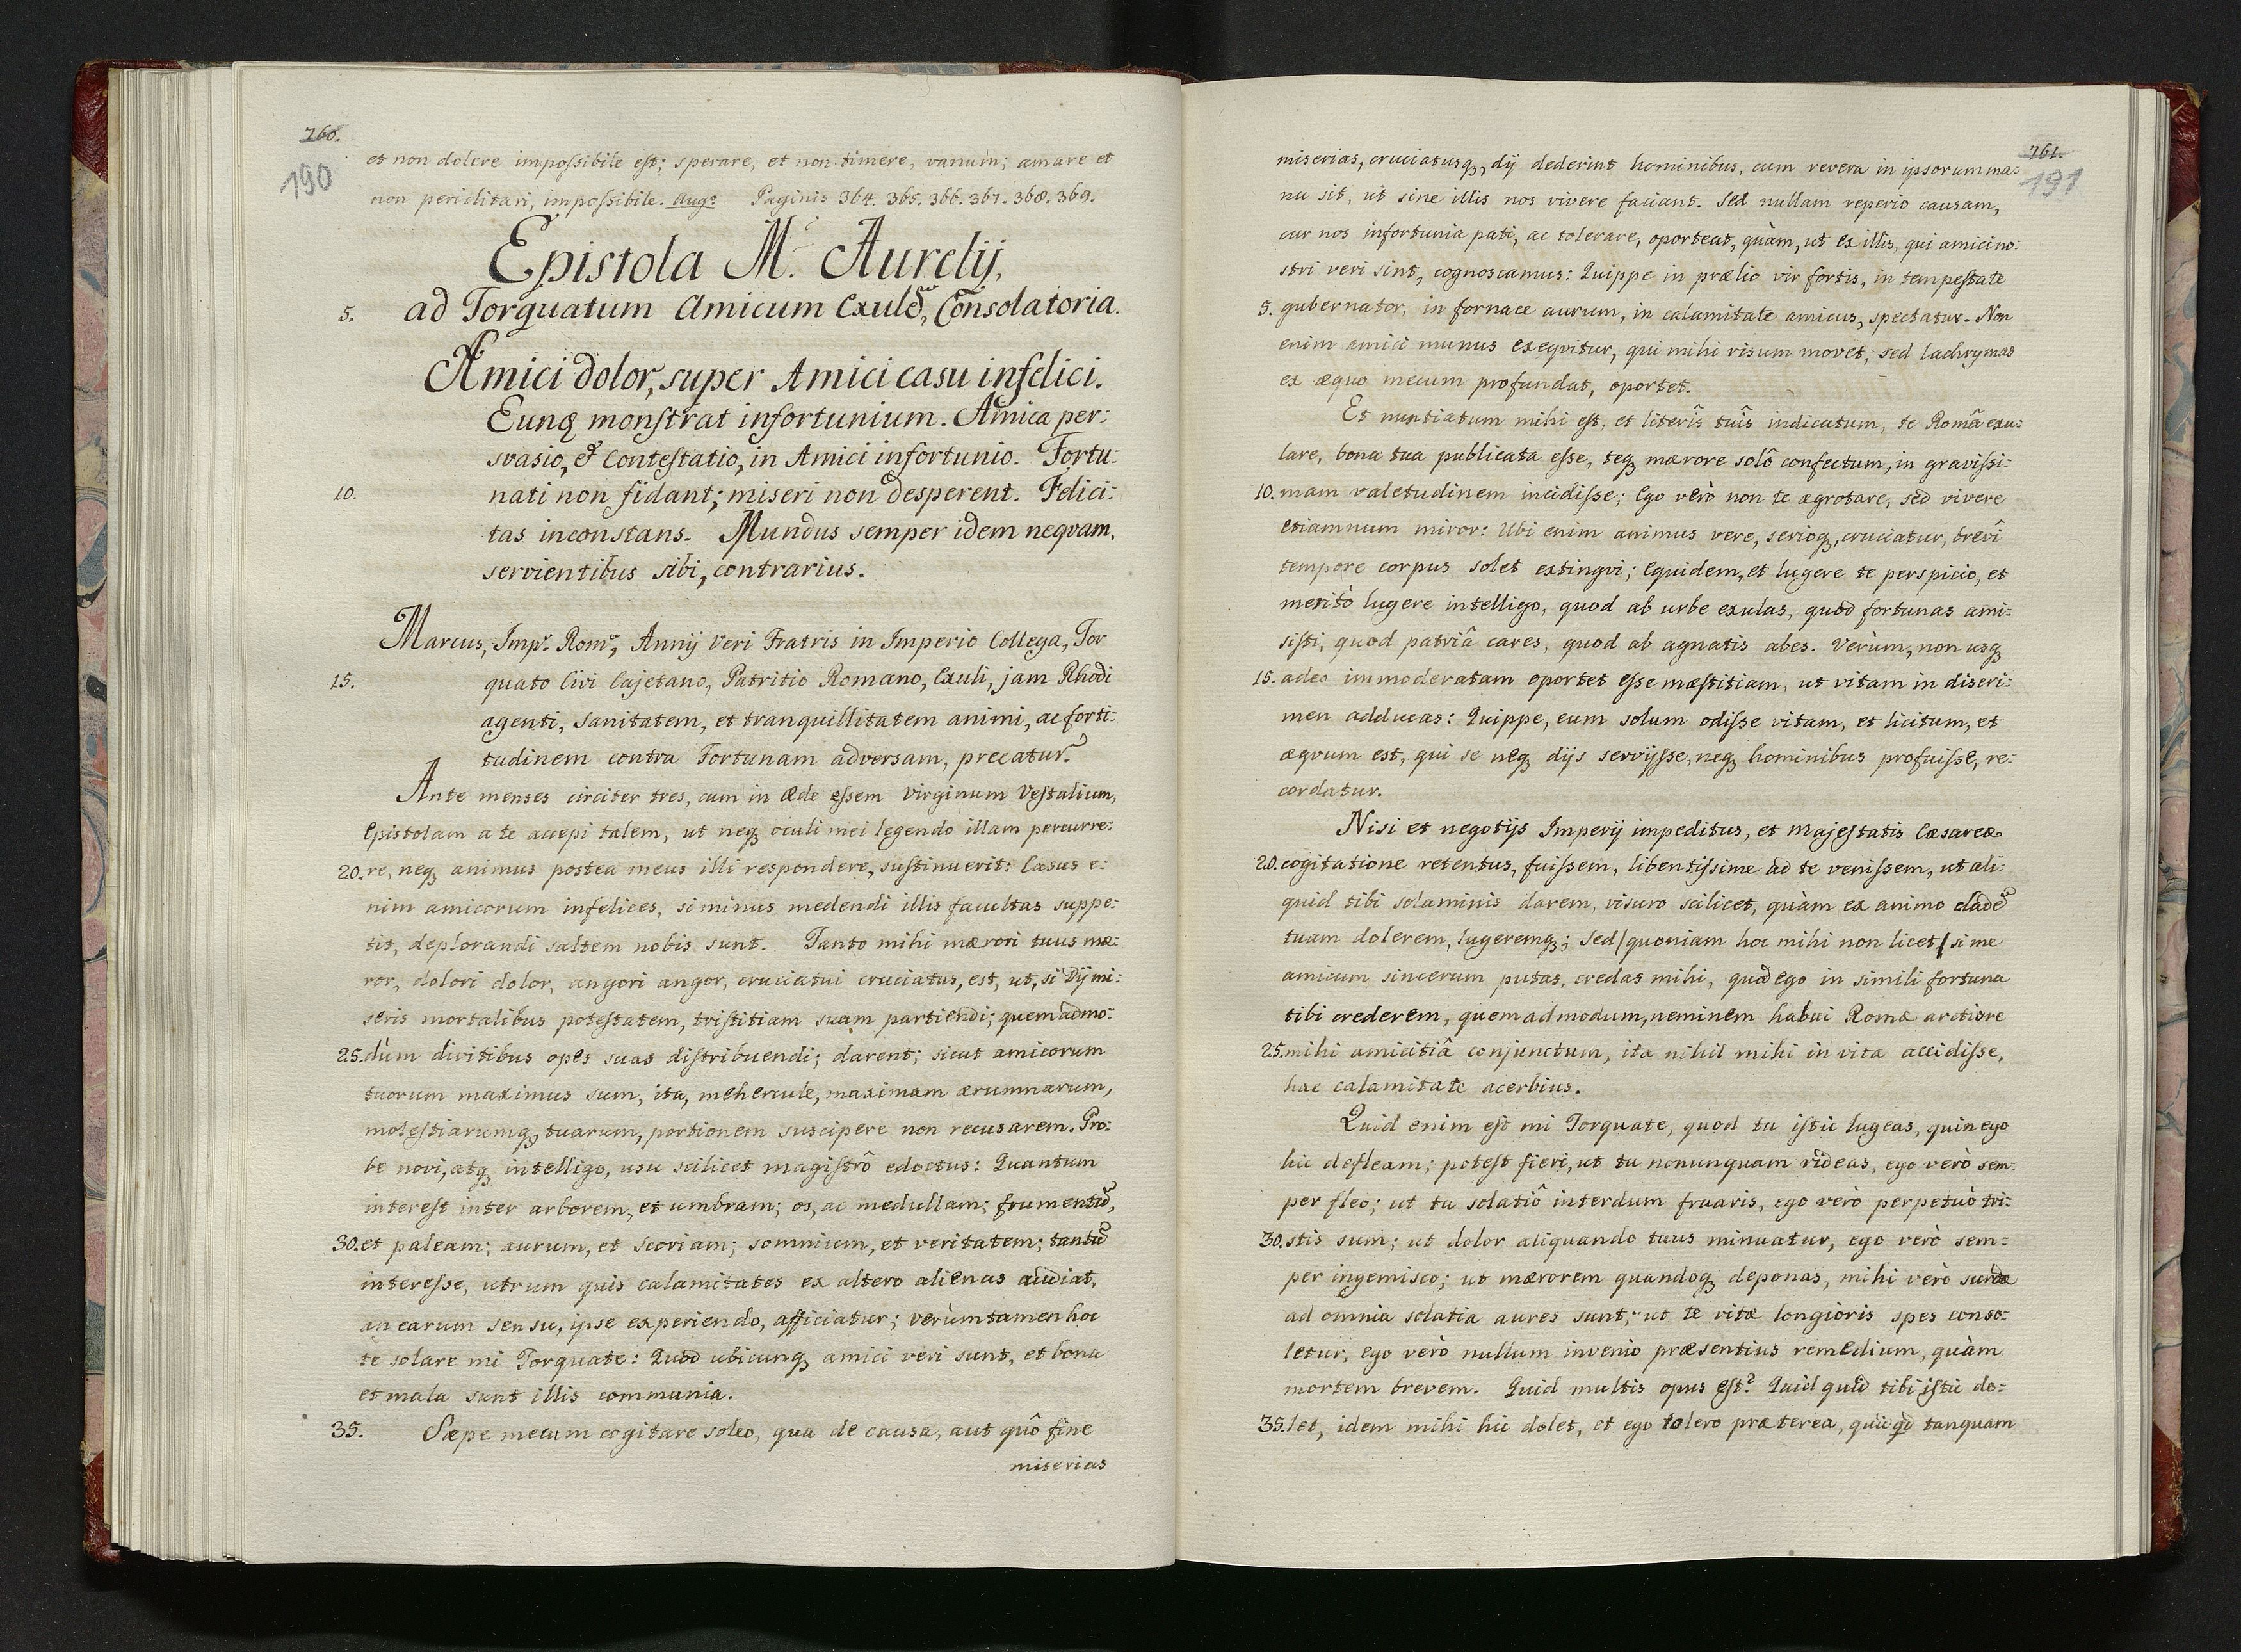 760.
190
et non dolere impossibile est; sperare, et non timere, vanum; amare et
non periclitari, impossibile. Augo Paginis 364. 365. 366. 367. 368. 369.
Epistola M. Aurelij,
5. ad Torquatum Amicum Exulẽ, Consolatoria.
Amici dolor, super Amici casu infelici.
Eunq monstrat infortunium. Amica per:
svasio, & Contestatio, in Amici infortunio. Fortu:
10. nati non fidant; miseri non desperent. Felici:
tas inconstans. Mundus semper idem neqvam,
servientibus sibi, contrarius.
Marcus, Impr. Romr, Annij Veri Fratris in Imperio Collega, Tor
15. quato Civi Cajetano, Patritio Romano, Exuli, jam Rhodi
agenti, sanitatem, et tranquillitatem animi, ac forti:
tudinem contra Fortunam adversam, precatur.
Ante menses circiter tres, cum in Æde essem Virginum Vestalium,
Epistolam a te accepi talem, ut neq oculi mei legendo illam percurre:
20. re, neq animus postea meus illi respondere, sustinuerit: Casus e:
nim amicorum infelices, si minus medendi illis facultas suppe:
tit, deplorandi saltem nobis sunt. Tanto mihi mærori tuus mæ:
ror, dolori dolor, angori angor, cruciatui cruciatus, est, ut, si Dij mi:
seris mortalibus potestatem, tristitiam suam partiendi; quemadmo:
25. dùm divitibus opes suas distribuendi; darent; sicut amicorum
tuorum maximus sum, ita, mehercule, maximam ærumnarum,
molestiarumq tuarum, portionem suscipere non recusarem. Pro:
be novi, atq intelligo, usu scilicet magistrô edoctus: Quantum
interest inter arborem, et umbram; os, ac medullam; frumentũ,
30. et paleam; aurum, et scoriam; somnium, et veritatem; tantũ
interesse, utrum quis calamitates ex altero alienas audiat,
an earum sensu, ipse experiendo, afficiatur; verùmtamen hoc
te solare mi Torquate: Quod ubicunq amici veri sunt, et bona
et mala sunt illis communia.
35. Sæpe mecum cogitare soleo, qua de causa, aut quô fine
miserias
761.
191
miserias, cruciatusq, dij dederint hominibus, cum revera in ipsorum ma:
nu sit, ut sine illis nos vivere faciant. Sed nullam reperio causam,
cur nos infortunia pati, ac tolerare, oporteat, quàm, ut ex illis, qui amici no:
stri veri sint, cognoscamus: Quippe in prælio vir fortis, in tempestate
5. gubernator, in fornace aurum, in calamitate amicus, spectatur. Non
enim amici munus exeqvitur, qui mihi risum movet, sed lachrymas
ex æquo mecum profundat, oportet.
Et nuntiatum mihi est, et literîs tuîs indicatum, te Româ exu:
lare, bona tua publicata esse, teq mærore solô confectum, in gravissi:
10. mam valetudinem incidisse; Ego verò non te ægrotare, sed vivere
etiamnum miror: Ubi enim animus vere, serioq, cruciatur, brevî
tempore corpus solet extingvi; Equidem, et lugere te perspicio, et
meritò lugere intelligo, quod ab urbe exulas, quod fortunas ami:
sisti, quod patriâ cares, quod ab agnatis abes. Verùm, non usq
15. adeo immoderatam oportet esse mæstitiam, ut vitam in discri:
men adducas: Quippe, eum solum odisse vitam, et licitum, et
æqvum est, qui se neq dijs servijsse, neq hominibus profuisse, re:
cordatur.
Nisi et negotijs Imperij impeditus, et Majestatis Cæsareæ
20. cogitatione retentus, fuissem, libentissime ad te venissem, ut ali:
quid tibi solaminis darem, visuro scilicet, quàm ex animo cladẽ
tuam dolerem, lugeremq; sed/quoniam hoc mihi non licet/si me
amicum sincerum putas, credas mihi, quod ego in simili fortuna
tibi crederem, quemadmodum, neminem habui Romæ arctiore
25. mihi amicitiâ conjunctum, ita nihil mihi in vita accidisse,
hac calamitate acerbius.
Quid enim est mi Torquate, quod tu istic lugeas, quin ego
hic defleam; potest fieri, ut tu nonunquam rideas, ego verò sem:
per fleo; ut tu solatiô interdum fruaris, ego verò perpetuò tri:
30. stis sum; ut dolor aliquando tuus minuatur, ego verò sem:
per ingemisco; ut mærorem quandoq deponas, mihi verò surdæ
ad omnia solatia aures sunt; ut te vitæ longioris spes conso:
letur, ego verò nullum invenio præsentius remedium, quàm
mortem brevem. Quid multis opus est? Quidquid tibi istic do:
35. let, idem mihi hic dolet, et ego tolero præterea, quicqd tanquam